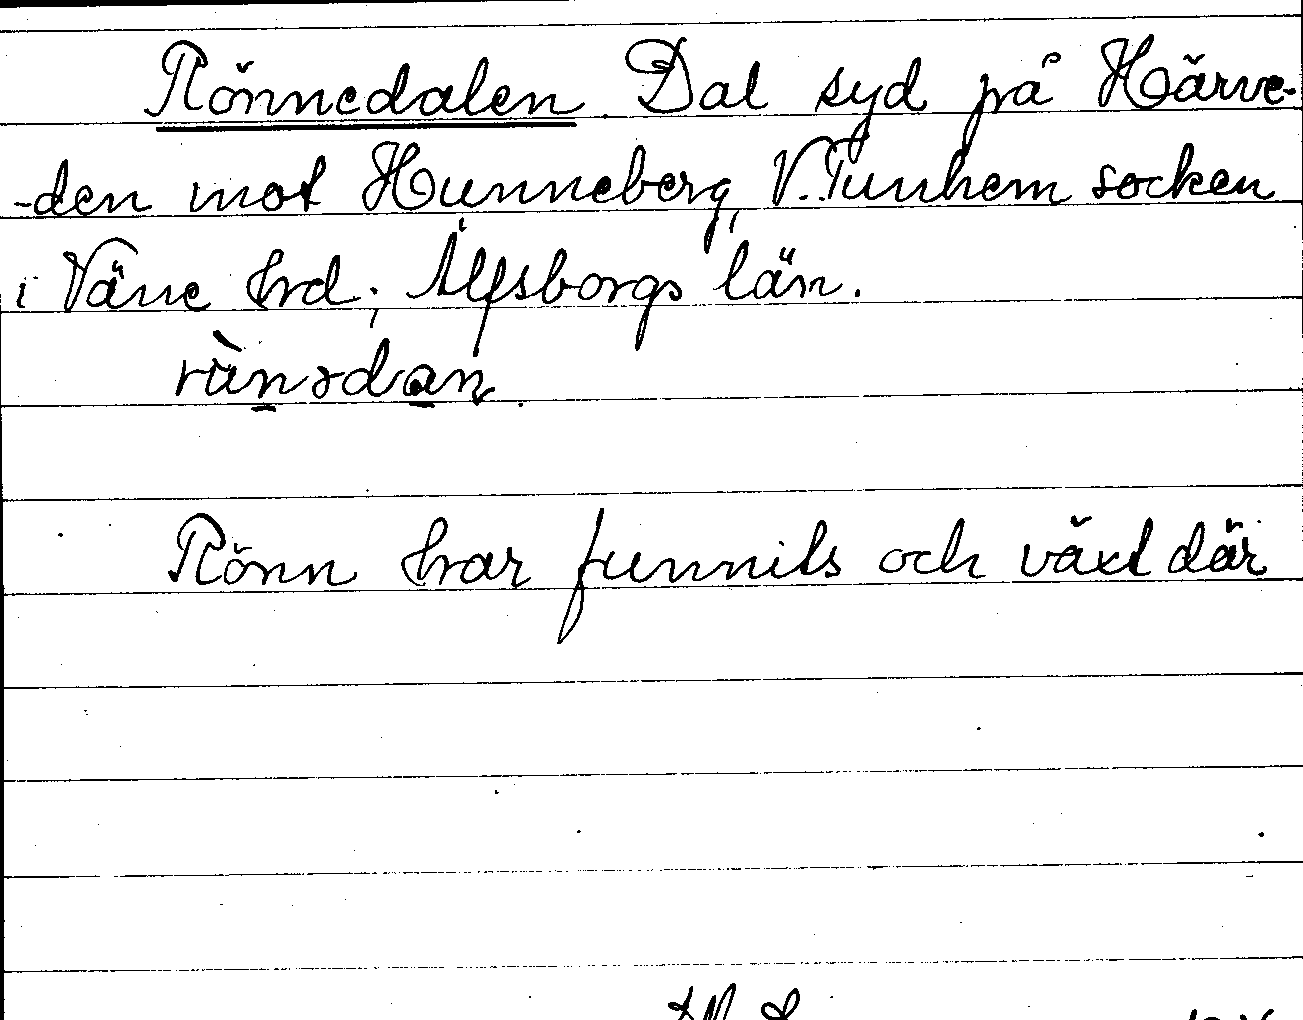 Rönnedalen. Dal syd på Härve-
-den mot Hunneberg, V. Tunhem socken
i Väne hrd; Älfsborgs län.
Rönn har funnits och växt där